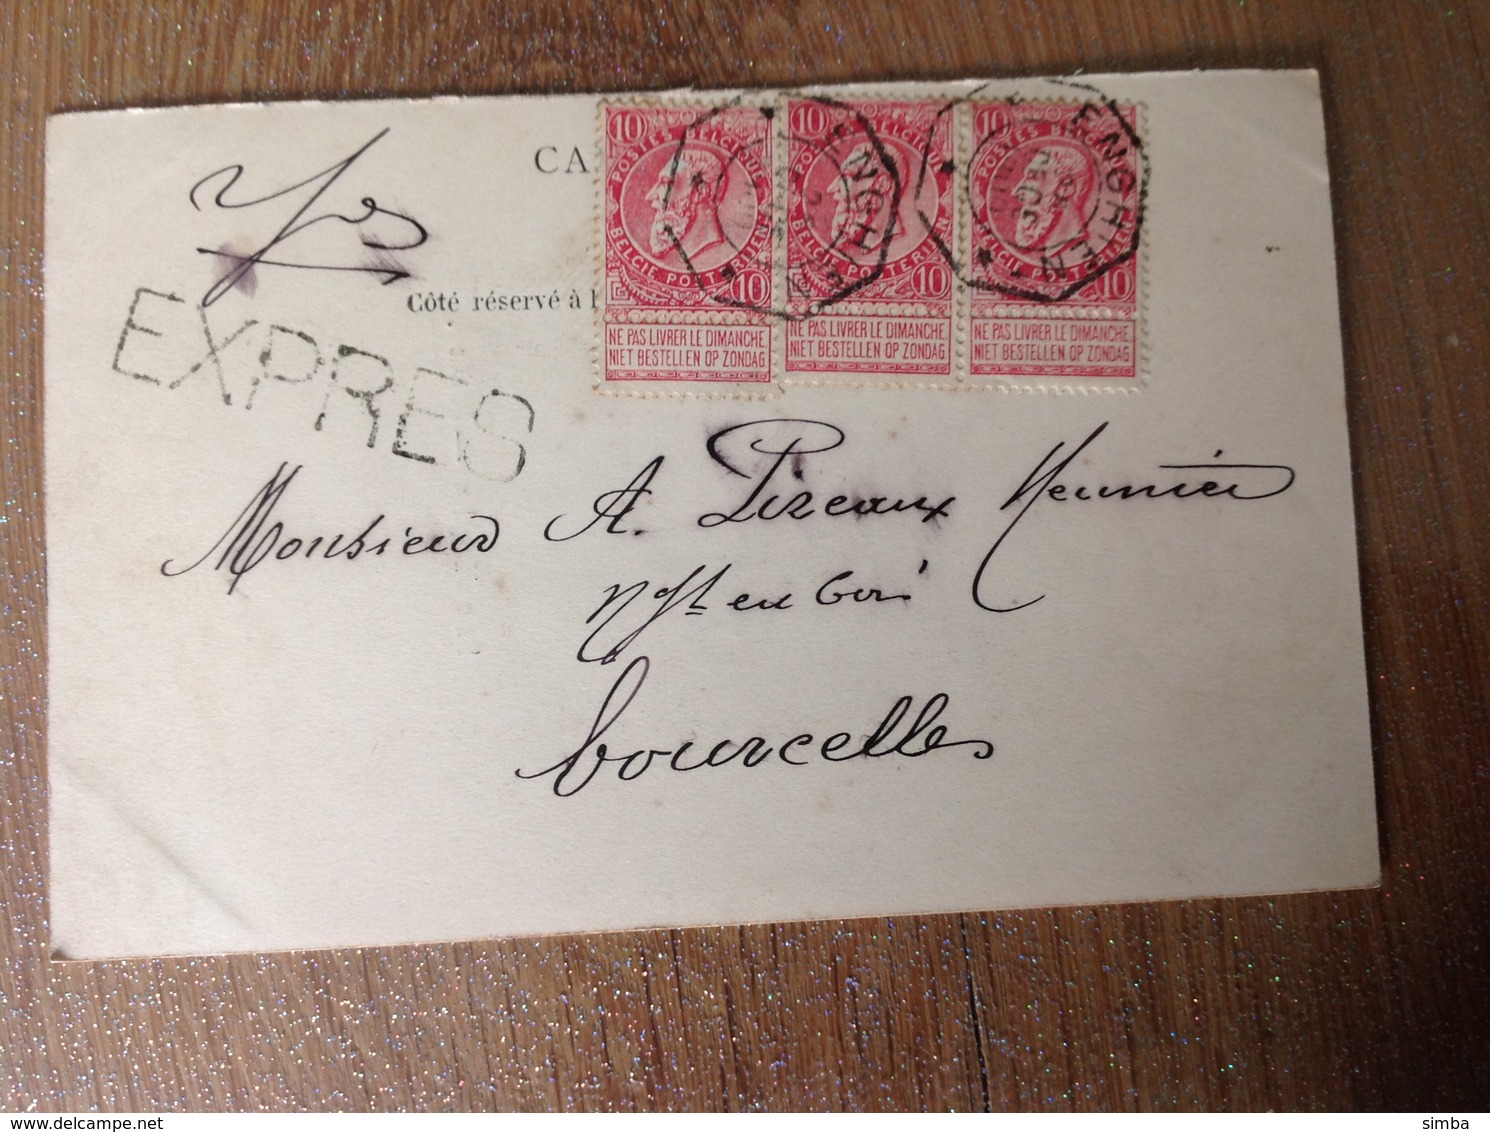 CA
Côté réservé à l
EXPRES
10 10
POSTES BELGIQUE
BELGIE POSTERIJEN
NE PAS LIVRER LE DIMANCHE
NIET BESTELLEN OP ZONDAG
10 10
POSTES BELGIQUE
BELGIE POSTERIJEN
NE PAS LIVRER LE DIMANCHE
NIET BESTELLEN OP ZONDAG
10 10
POSTES BELGIQUE
BELGIE POSTERIJEN
NE PAS LIVRER LE DIMANCHE
NIET BESTELLEN OP ZONDAG
ENGHIEN
ENGHIEN
Monsieur A. Pireaux Meunier
en bois
Courcelles
simba